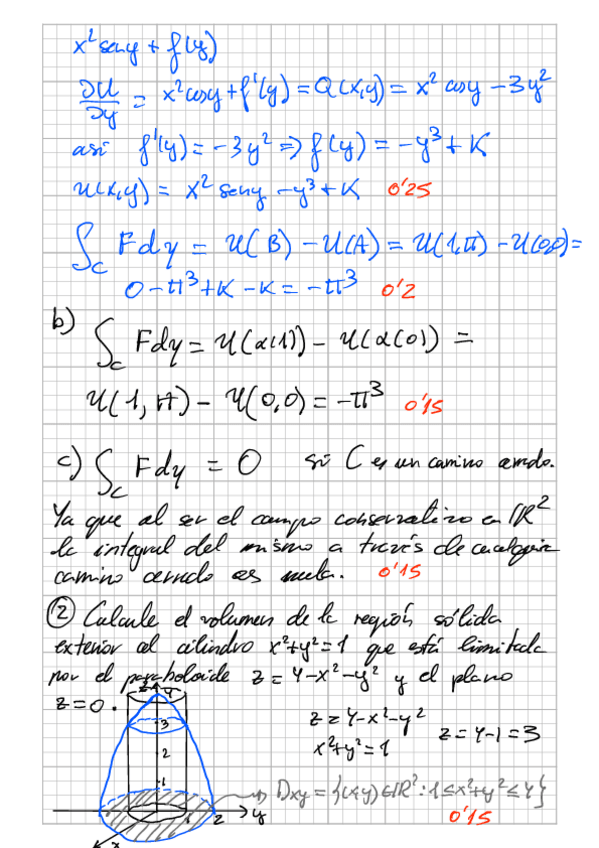 x² seny + f(y)
∂U/∂y = x² cosy + f'(y) = Q(x,y) = x² cosy - 3y²
así f'(y) = -3y² => f(y) = -y³ + K
u(x,y) = x² seny - y³ + K 0'25
∫_C F dγ = U(B) - U(A) = U(1,π) - U(0,0) =
0 - π³ + K - K = -π³ 0'2
b) ∫_C F dγ = U(α(1)) - U(α(0)) =
U(1,π) - U(0,0) = -π³ 0'15
c) ∫_C F dγ = 0 si C es un camino cerrado.
Ya que al ser el campo conservativo en ℝ²
la integral del mismo a través de cualquier
camino cerrado es nula. 0'15
② Calcule el volumen de la región sólida
exterior al cilindro x²+y²=1 que está limitada
por el paraboloide z = 4-x²-y² y el plano
z=0.
z = 4-x²-y²
x²+y²=1
z = 4-1 = 3
z
4
3
2
1
Dxy = {(x,y)∈ℝ² : 1≤x²+y²≤4}
1 2 y
0'15
x